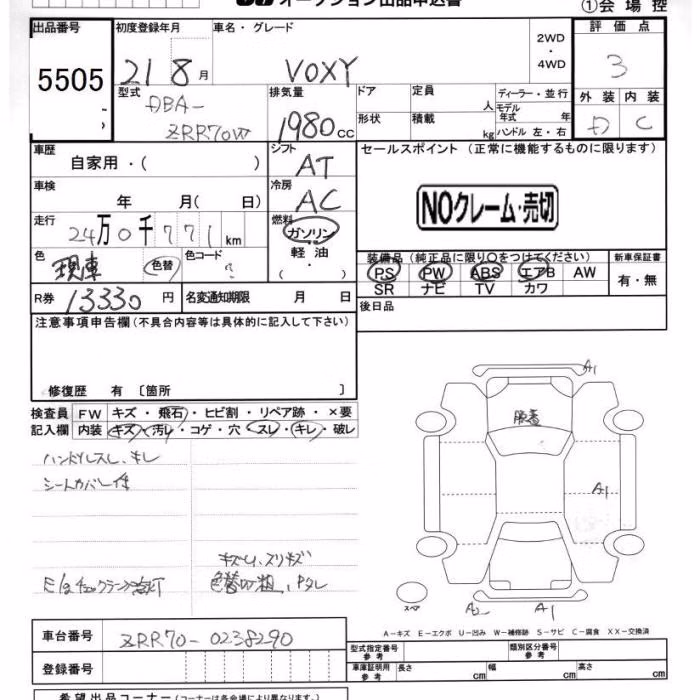 オークション出品申込書
①会場控
出品番号
5505
初度登録年月
21 8月
車名・グレード
VOXY
2WD
・
4WD
評価点
3
型式
DBA-
ZRR70W
排気量
1980cc
ドア
定員
人
ディーラー・並行
形状
積載
kg
モデル年式 年
ハンドル 左・右
外装
内装
D
C
車歴
自家用・( )
シフト
AT
セールスポイント (正常に機能するものに限ります)
NOクレーム・売切
車検
年 月( 日)
冷房
AC
走行
24万0千771km
燃料
ガソリン
軽油
・
色
現車
色替
色コード
?
装備品 (純正品に限り○をつけてください)
PS PW ABS エアB AW
SR ナビ TV カワ
新車保証書
有・無
R券 13330円
名変通知期限 月 日
後日品
注意事項申告欄 (不具合内容等は具体的に記入して下さい)
修復歴 有 [箇所 ]
検査員
記入欄
FW キズ・飛石・ヒビ割・リペア跡・×要
内装 キズ・汚レ・コゲ・穴・スレ・キレ・破レ
ハンドルスレ、キレ
シートカバー付
キズU、スリキズ
E/gチェックランプ点灯
色替り粗、Pタレ
A1
脱着
A1
スペア
A2
A1
A-キズ E-エクボ U-凹み W-補修跡 S-サビ C-腐食 XX-交換済
車台番号
ZRR70-0238290
登録番号
型式指定番号
参考
類別区分番号
参考
車庫証明用
参考
長さ cm
幅 cm
高さ cm
希望出品コーナー (コーナーは各会場により異なります。)